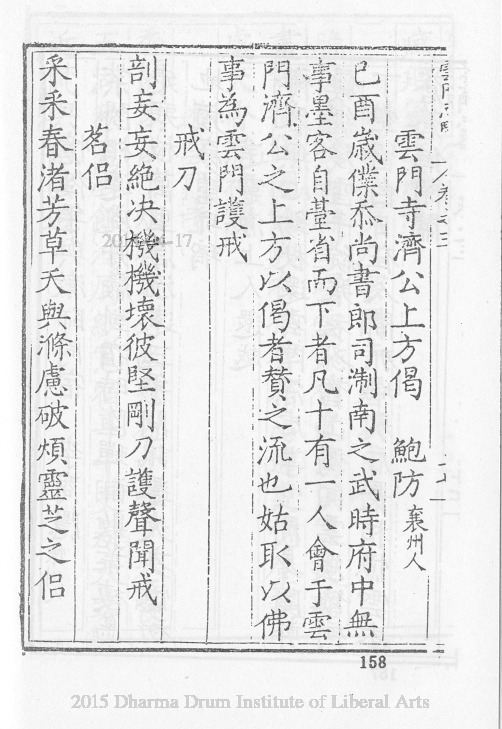 雲門寺濟公上方偈　鮑防襄州人
己酉歲僕忝尚書郎司淛南之武時府中無
事墨客自臺省而下者凡十有一人會于雲
門濟公之上方以偈者贊之流也姑取以佛
事為雲門護戒
戒刀
剖妄妄絕决機機壞彼堅剛刀護聲聞戒
茗侣
采采春渚芳草天與滌慮破煩靈芝之侣
158
2015 Dharma Drum Institute of Liberal Arts